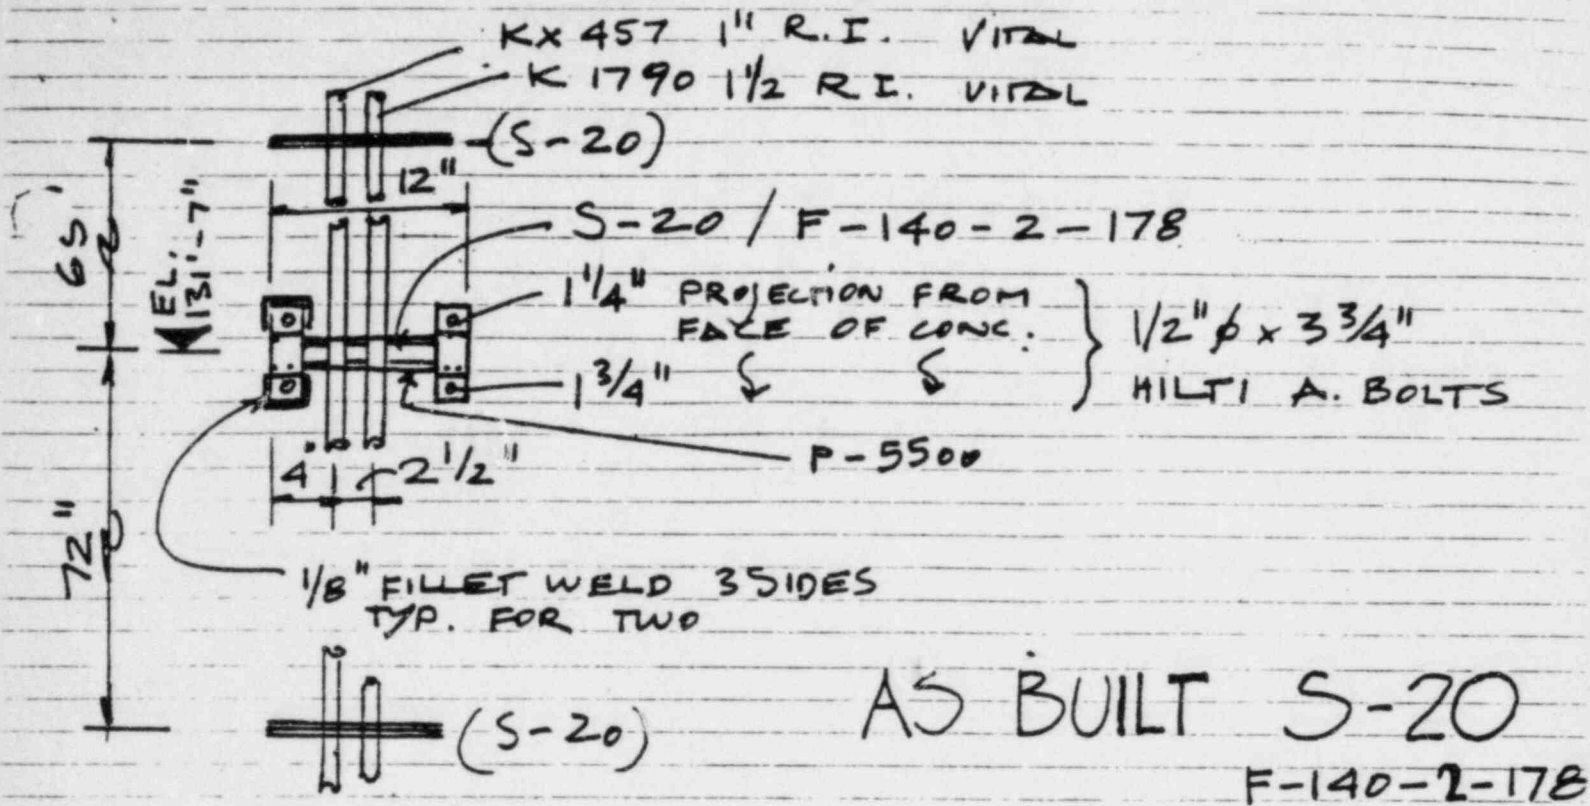 KX 457 1" R.I. VITAL
K 1790 1 1/2 R.I. VITAL
(S-20)
12"
65
S-20 / F-140-2-178
EL. 131'-7"
1 1/4" PROJECTION FROM
FACE OF CONC.
1/2" φ x 3 3/4"
HILTI A. BOLTS
1 3/4"
P-5500
4" 2 1/2"
72"
1/8" FILLET WELD 3 SIDES
TYP. FOR TWO
(S-20)
AS BUILT S-20
F-140-2-178